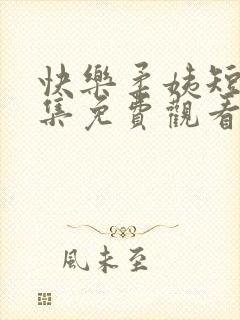 快樂柔姨短
集免費觀看
風未至